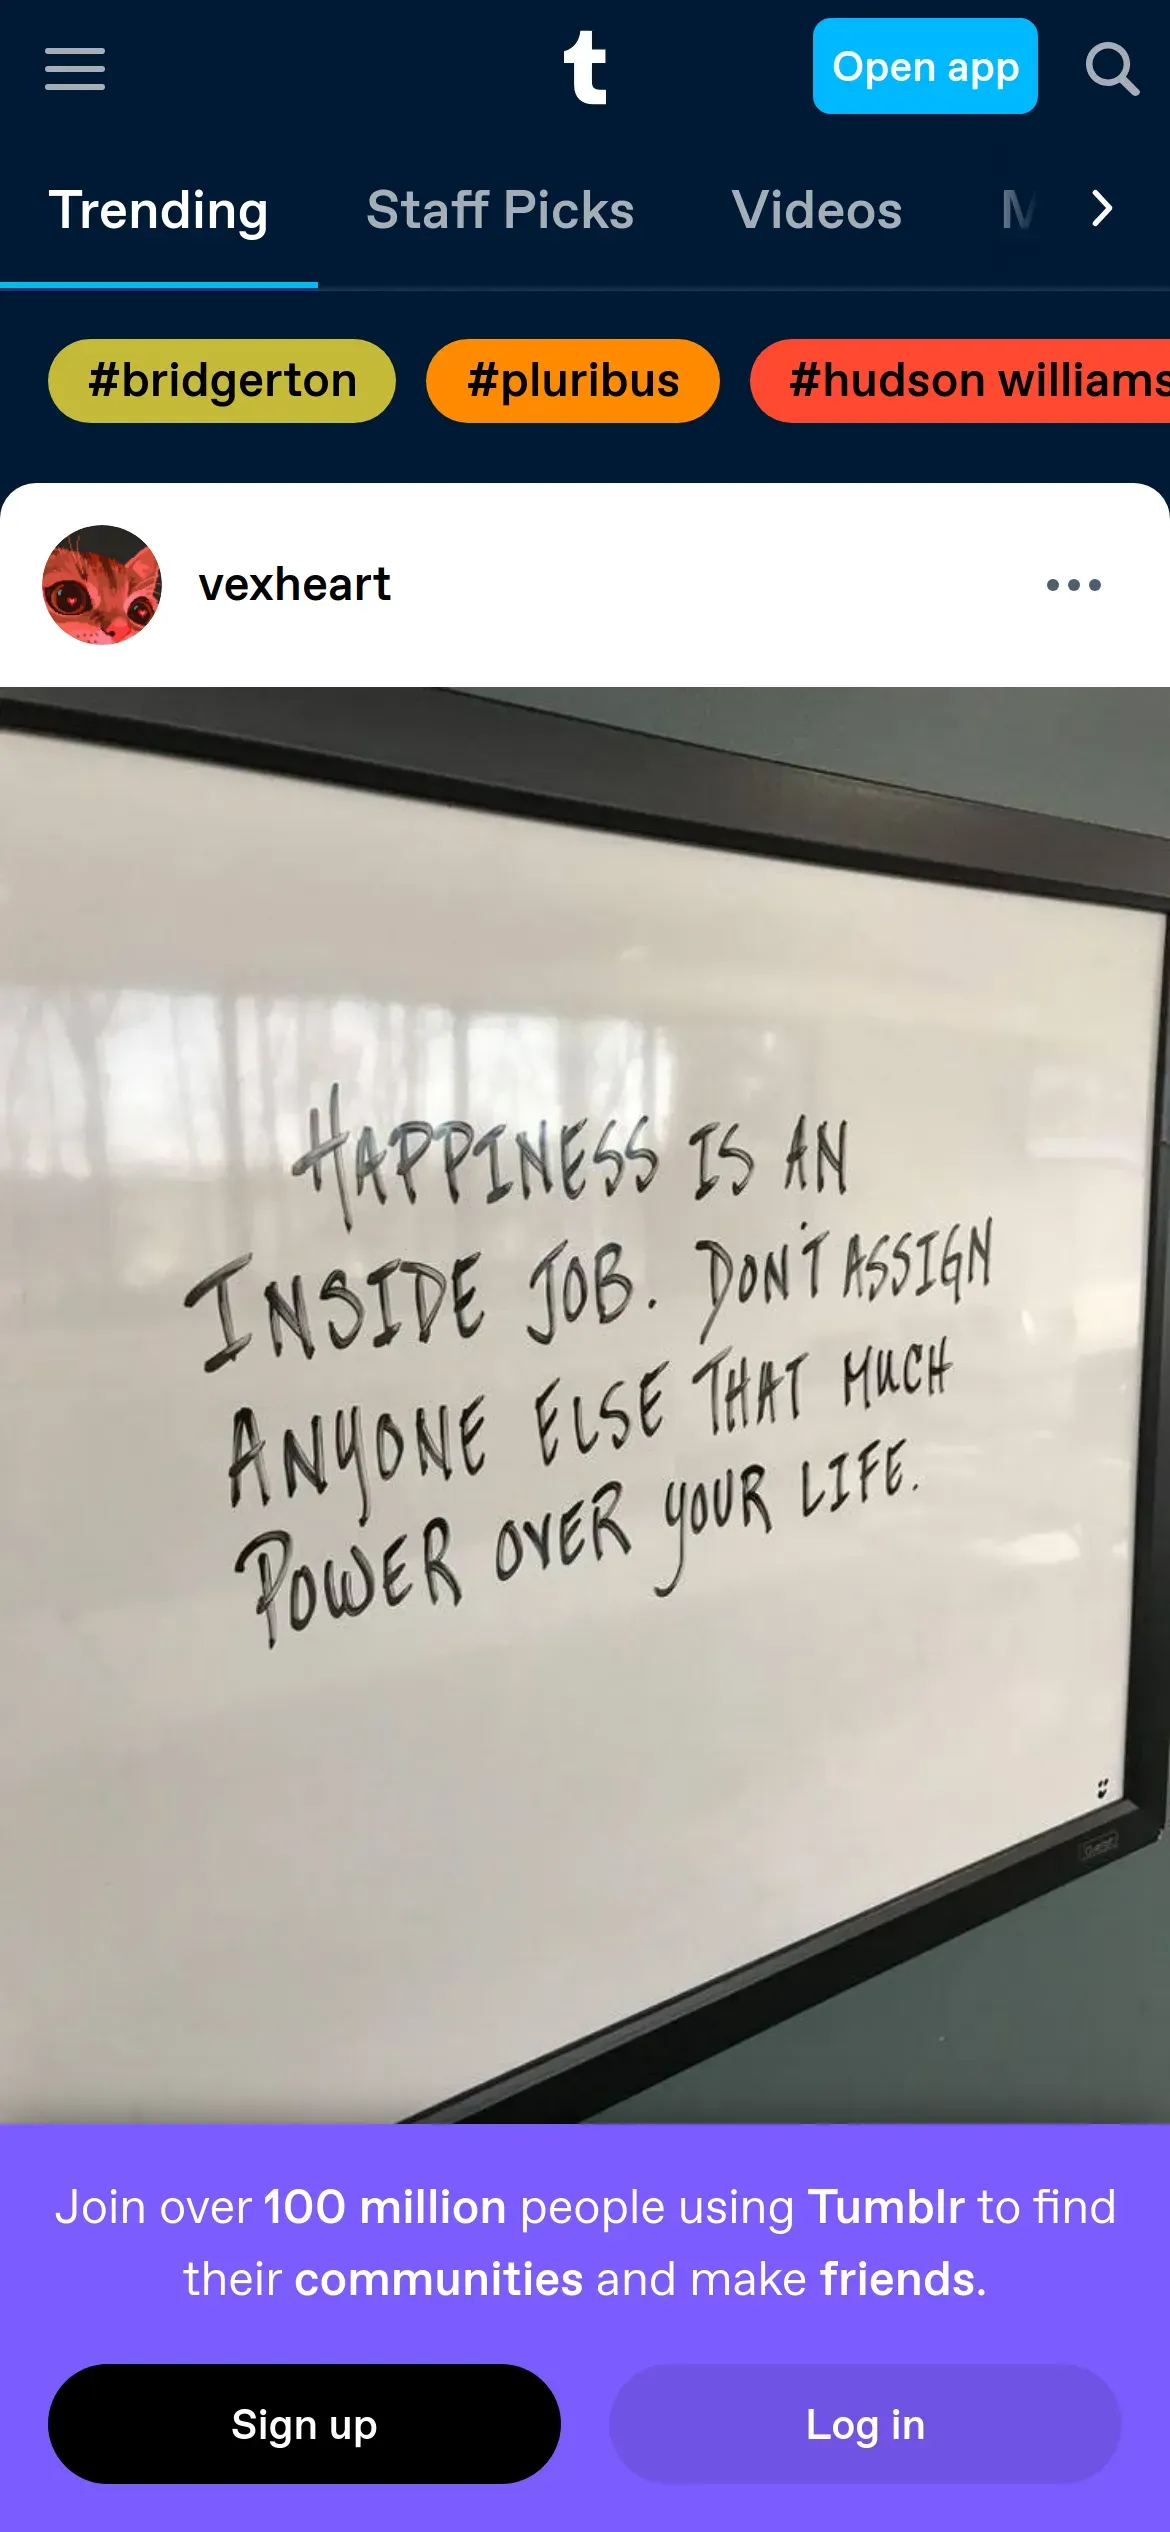 t
Open app
Trending
Staff Picks
Videos
#bridgerton
#pluribus
#hudson williams
vexheart
HAPPINESS IS AN
INSIDE JOB. DON'T ASSIGN
ANYONE ELSE THAT MUCH
POWER OVER YOUR LIFE.
Join over 100 million people using Tumblr to find
their communities and make friends.
Sign up
Log in